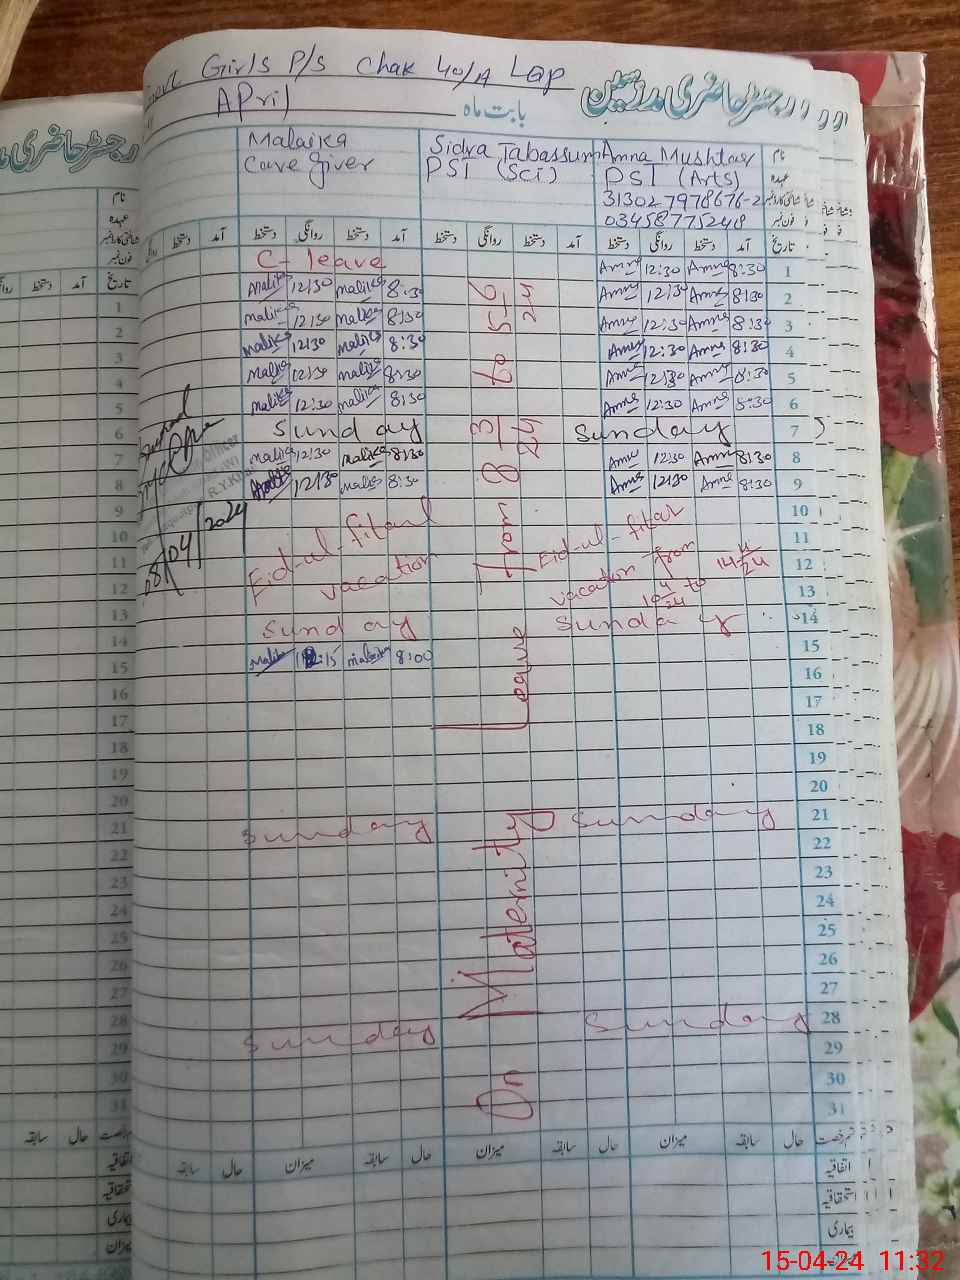 Girls P/S Chak 40/A Lap
رجسٹر حاضری مدرسین
April
بابت ماہ
Malaika
Care giver
Sidra Tabassum
PST (Sci)
Amna Mushtaq
PST (Arts)
313027978676-2
03458775248
نام
عہدہ
شناختی کارڈ نمبر
فون نمبر
دستخط روانگی دستخط آمد دستخط روانگی دستخط آمد دستخط روانگی دستخط آمد تاریخ
C- leave Amna 12:30 Amna 8:30 1
Malika 12:30 Malika 8:30 Amna 12:30 Amna 8:30 2
Malika 12:30 Malika 8:30 Amna 12:30 Amna 8:30 3
Malika 12:30 Malika 8:30 Amna 12:30 Amna 8:30 4
Malika 12:30 Malika 8:30 Amna 12:30 Amna 8:30 5
Malika 12:30 Malika 8:30 Amna 12:30 Amna 8:30 6
Sunday Sunday 7
Malika 12:30 Malika 8:30 Amna 12:30 Amna 8:30 8
12:30 Malika 8:30 Amna 12:30 Amna 8:30 9
10
Eid-ul-fitar
vacation
11
Eid-ul-fitar
vacation from
12
14 4/24
10 4/24 to
13
Sunday Sunday 14
Malika 12:15 Malika 8:00 15
16
17
18
19
20
Sunday Sunday 21
22
23
24
25
26
27
Sunday Sunday 28
29
30
31
On Maternity Leave from 8-3/24 to 5-6/24
08/04/2024
میزان سابقہ حال میزان سابقہ حال میزان سابقہ حال
اتفاقیہ
استحقاقیہ
بیماری
میزان
15-04-24 11:32